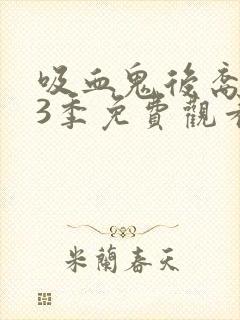 吸血鬼後裔
3季免費觀看
米蘭春天